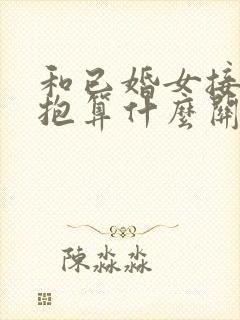 和已婚女接
抱算什麼關
陳淼淼